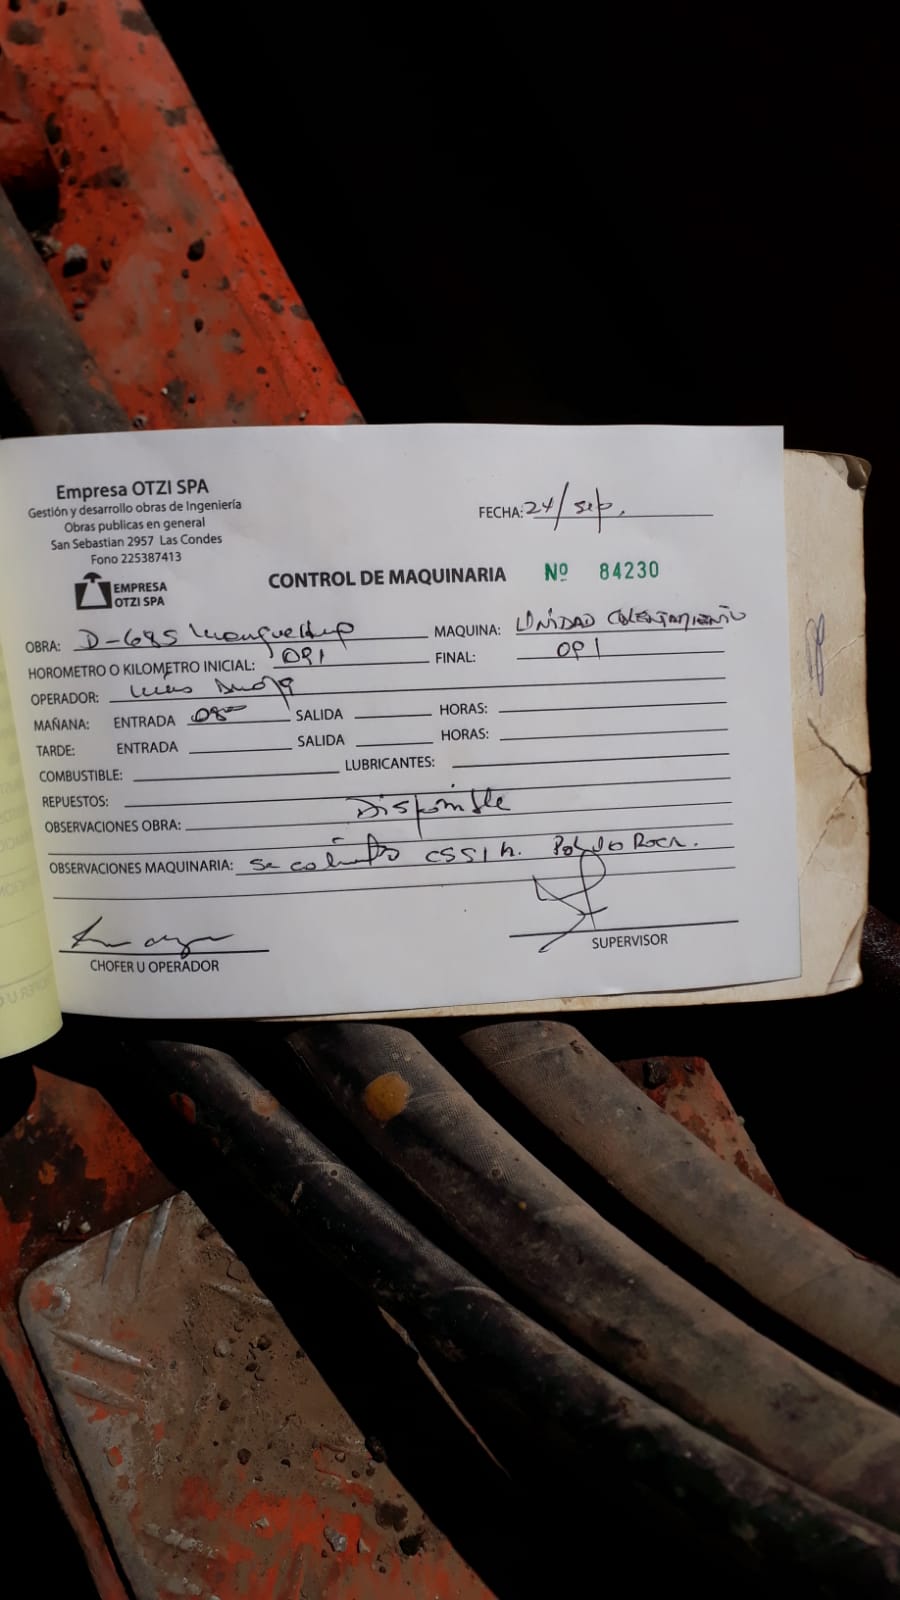 Empresa OTZI SPA
Gestión y desarrollo obras de Ingeniería
Obras publicas en general
San Sebastian 2957 Las Condes
Fono 225387413
EMPRESA
OTZI SPA
FECHA: 24/sep.
CONTROL DE MAQUINARIA Nº 84230
OBRA: D-685 MAQUINA: UNIDAD
HOROMETRO O KILOMETRO INICIAL: 091 FINAL: 091
OPERADOR: Luis
MAÑANA: ENTRADA 08 SALIDA HORAS:
TARDE: ENTRADA SALIDA HORAS:
COMBUSTIBLE: LUBRICANTES:
REPUESTOS:
OBSERVACIONES OBRA: Disponible
OBSERVACIONES MAQUINARIA: Se CSS1h.
CHOFER U OPERADOR
SUPERVISOR